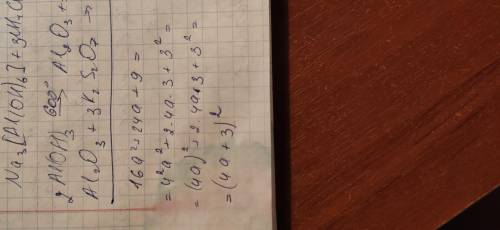 Na₃[Al(OH)₆] + 3
2Al(OH)₃ 600° → Al₂O₃ +
Al₂O₃ + 3K₂S₂O₇ →
16a² + 24a + 9 =
= 4²a² + 2·4a·3 + 3² =
= (4a)² + 2·4a·3 + 3² =
= (4a + 3)²